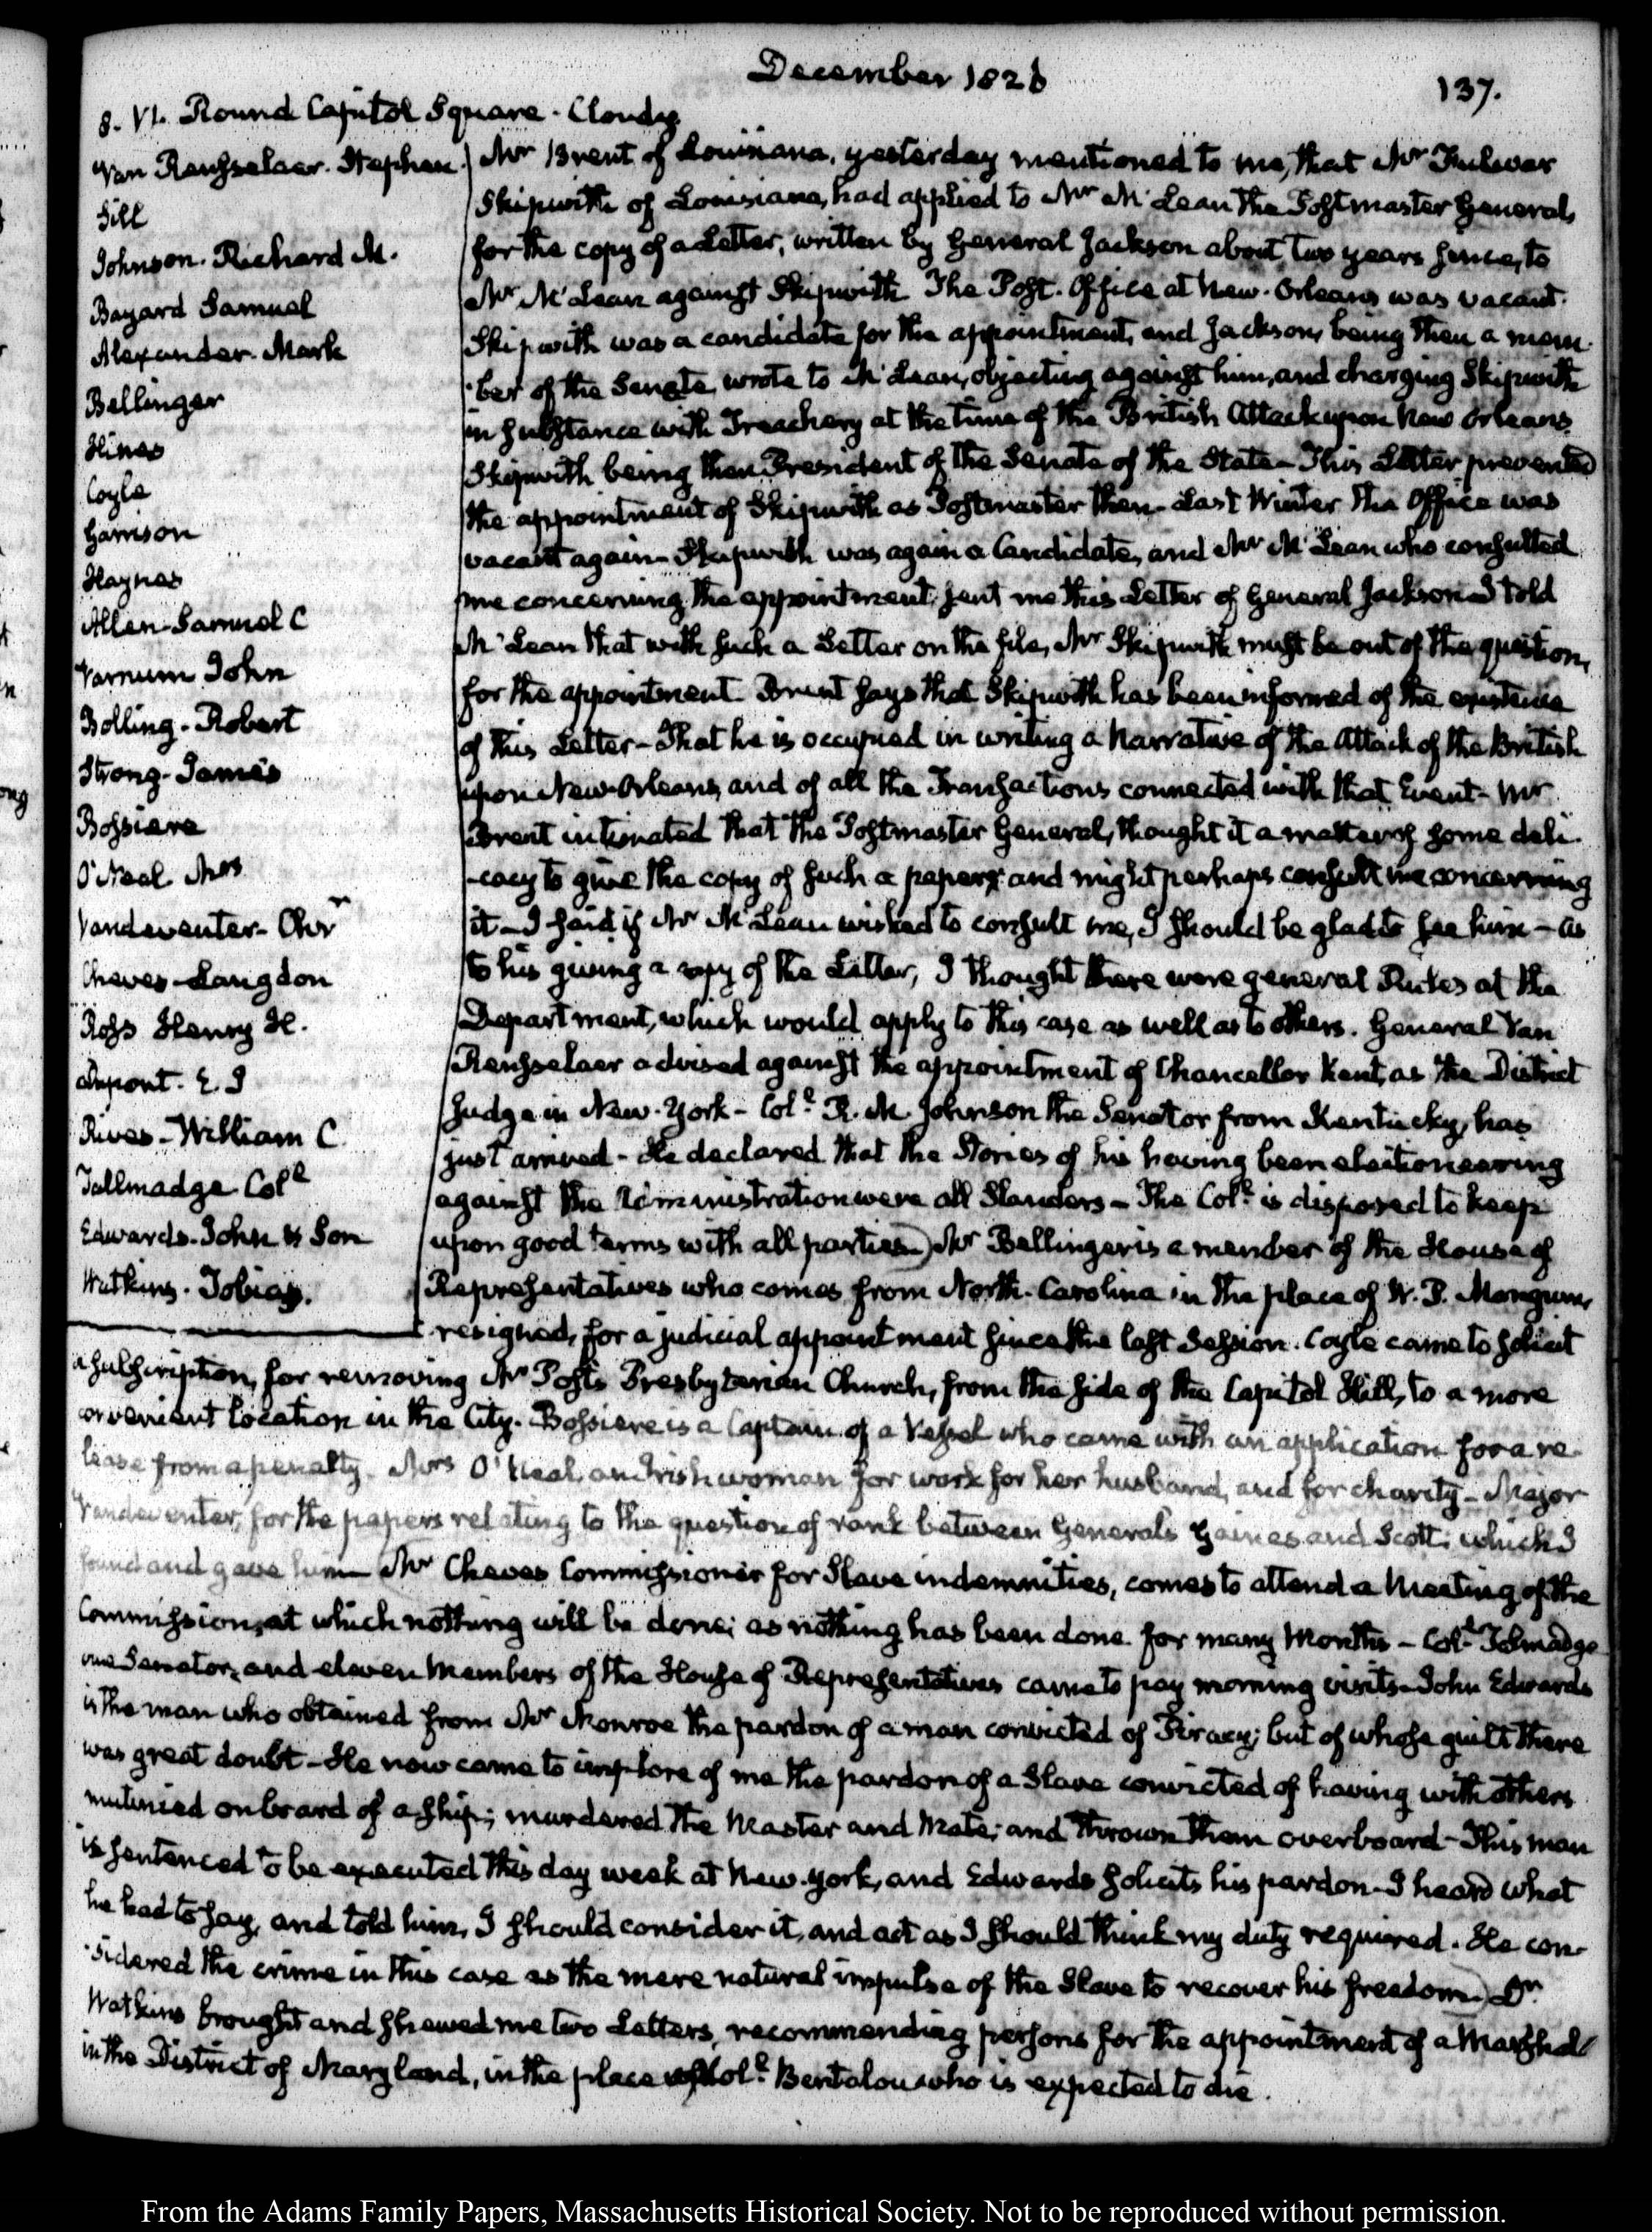 December 1826
137.
8. VI. Round Capitol Square. Cloudy
Van Rensselaer. Stephen.
Sill
Johnson. Richard M.
Bayard Samuel
Alexander. Mark
Bellinger
Hines
Coyle
Garrison
Haynes
Allen Samuel C
Varnum John
Bolling. Robert
Strong. James
Bossiere
O'Neal Mrs
Vandeventer. Chr
Cheves Langdon
Ross Henry H.
Dupont. E. I
Rives. William C
Tallmadge Colo
Edwards. John & Son
Watkins. Tobias.
Mr Brent of Louisiana, yesterday mentioned to me, that Mr Fulwar
Skipwith of Louisiana, had applied to Mr McLean the Postmaster General,
for the copy of a Letter, written by General Jackson about two years since, to
Mr McLean against Skipwith The Post. Office at New. Orleans was vacant.
Skipwith was a candidate for the appointment, and Jackson, being then a mem-
-ber of the Senate, wrote to McLean, objecting against him, and charging Skipwith
in substance with Treachery at the time of the British Attack upon New Orleans
Skipwith being then President of the Senate of the State. This Letter prevented
the appointment of Skipwith as Postmaster then. Last Winter the Office was
vacant again. Skipwith was again a Candidate, and Mr McLean who consulted
me concerning the appointment, sent me this Letter of General Jackson. I told
McLean that with such a Letter on the file, Mr Skipwith must be out of the question,
for the appointment. Brent says that Skipwith has been informed of the existence
of this Letter. That he is occupied in writing a Narrative of the Attack of the British
upon New Orleans, and of all the Transactions connected with that Event. Mr
Brent intimated that the Postmaster General, thought it a matter of some deli-
-cacy to give the copy of such a paper; and might perhaps consult me concerning
it. I said if Mr McLean wished to consult me, I should be glad to see him. As
to his giving a copy of the Letter, I thought there were general Rules at the
Department, which would apply to this case as well as to others. General Van
Rensselaer advised against the appointment of Chancellor Kent, as the District
Judge in New. York. Colo R. M. Johnson the Senator from Kentucky, has
just arrived. He declared that the Stories of his having been electioneering
against the Administration were all Slanders. The Colo is disposed to keep
upon good terms with all parties. Mr Bellinger is a member of the House of
Representatives who comes from North. Carolina in the place of W. P. Mangum,
resigned, for a judicial appointment since the last Session. Coyle came to solicit
a subscription, for removing Mr Post's Presbyterian Church, from the side of the Capitol Hill, to a more
convenient location in the City. Bossiere is a Captain of a Vessel who came with an application for a re-
lease from a penalty. Mrs O'Neal an Irish woman for work for her husband, and for charity. Major
Vandeventer, for the papers relating to the question of rank between Generals Gaines and Scott; which I
found and gave him. Mr Cheves Commissioner for Slave indemnities, comes to attend a Meeting of the
Commission, at which nothing will be done; as nothing has been done for many Months. Colo Talmadge
one Senator, and eleven Members of the House of Representatives came to pay morning visits. John Edwards
is the man who obtained from Mr Monroe the pardon of a man convicted of Piracy; but of whose guilt there
was great doubt. He now came to implore of me the pardon of a Slave convicted of having with others
mutinied on board of a ship; murdered the Master and Mate; and thrown them overboard. This man
is sentenced to be executed this day week at New. York, and Edwards solicits his pardon. I heard what
he had to say, and told him, I should consider it, and act as I should think my duty required. He con-
-sidered the crime in this case as the mere natural impulse of the Slave to recover his freedom. Dr
Watkins brought and shewed me two Letters, recommending persons for the appointment of a Marshal
in the District of Maryland, in the place of Colo Bentalou who is expected to die.
From the Adams Family Papers, Massachusetts Historical Society. Not to be reproduced without permission.